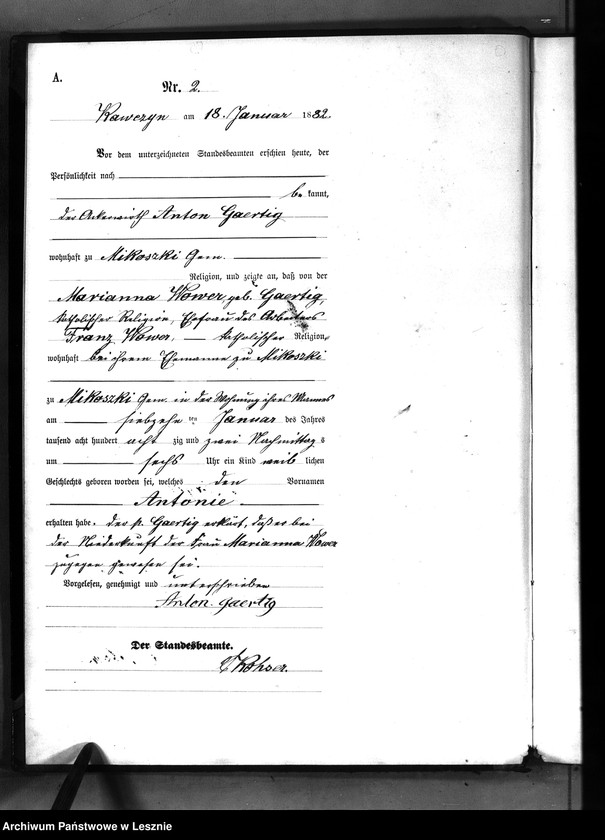 A.
Nr. 2.
Kawczyn am 18. Januar 1882.
Vor dem unterzeichneten Standesbeamten erschien heute, der
Persönlichkeit nach
be kannt,
der Ackerwirth Anton Gaertig
wohnhaft zu Mikoszki Gem.
Religion, und zeigte an, daß von der
Marianna Kower geb. Gaertig,
katholischer Religion, Ehefrau des Arbeiters
Franz Kower, katholischer Religion,
wohnhaft bei ihrem Ehemanne zu Mikoszki
zu Mikoszki Gem. in der Wohnung ihres Mannes
am siebzehn ten Januar des Jahres
tausend acht hundert acht zig und zwei Nachmittag s
um sechs Uhr ein Kind weib lichen
Geschlechts geboren worden sei, welches den Vornamen
Antonie
erhalten habe. der p. Gaertig erklärt, daß er bei
der Niederkunft der Frau Marianna Kower
zugegen gewesen sei.
Vorgelesen, genehmigt und unterschrieben
Anton Gaertig
Der Standesbeamte.
Archiwum Państwowe w Lesznie